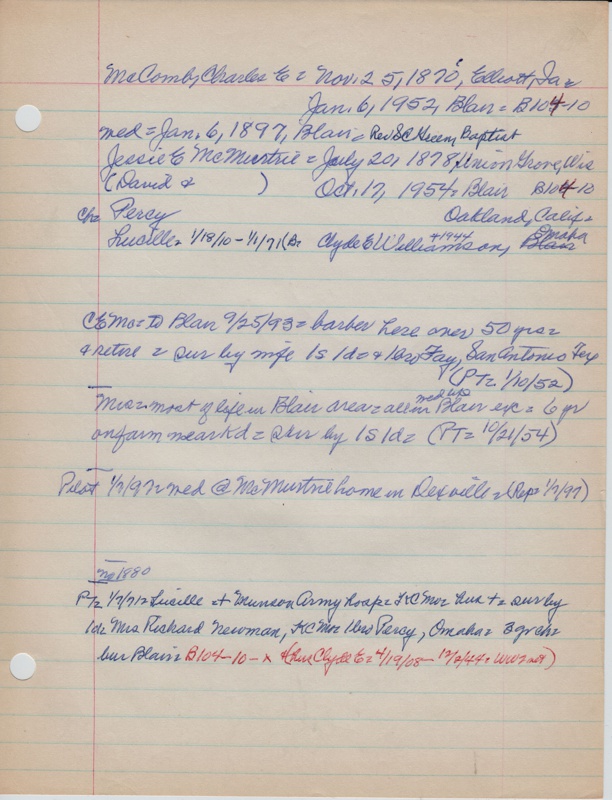 McComb, Charles E = Nov. 25, 1870, Elliott, Ia =
Jan. 6, 1952, Blair = B104-10
med = Jan. 6, 1897, Blair = Rev SC Green, Baptist
Jessie E McMurtrie = July 20, 1878, Union Grove, Wis
(David &        )   Oct. 17, 1954 = Blair   B104-10
Ch = Percy   Oakland, Calif. =
Lucille = 1/18/10 - 1/1/71 (& = Clyde E Williamson, +1944 Omaha Blair
CE Mc = to Blair 9/25/93 = barber here over 50 yrs =
& retire = sur by wife 1s 1d = & 1 bro Fay, San Antonio Tex
(PT = 1/10/52)
Mrs = most of life in Blair area = in Blair exc = 6 yr
on farm near Kd = sur by 1s 1d = (PT = 10/21/54)
Pilot 1/7/97 = med @ McMurtrie home in Dexville = (Rep = 1/7/97)
no 1880
PT = 1/7/71 = Lucille = + Munson Army hosp = KC Mo = hus + = sur by
1d = Mrs Richard Newman, KC Mo = 1 bro Percy, Omaha = 3 grch =
bur Blair = B104-10-x & (hus Clyde E = 4/19/08 - 12/2/44 = WW2 not)